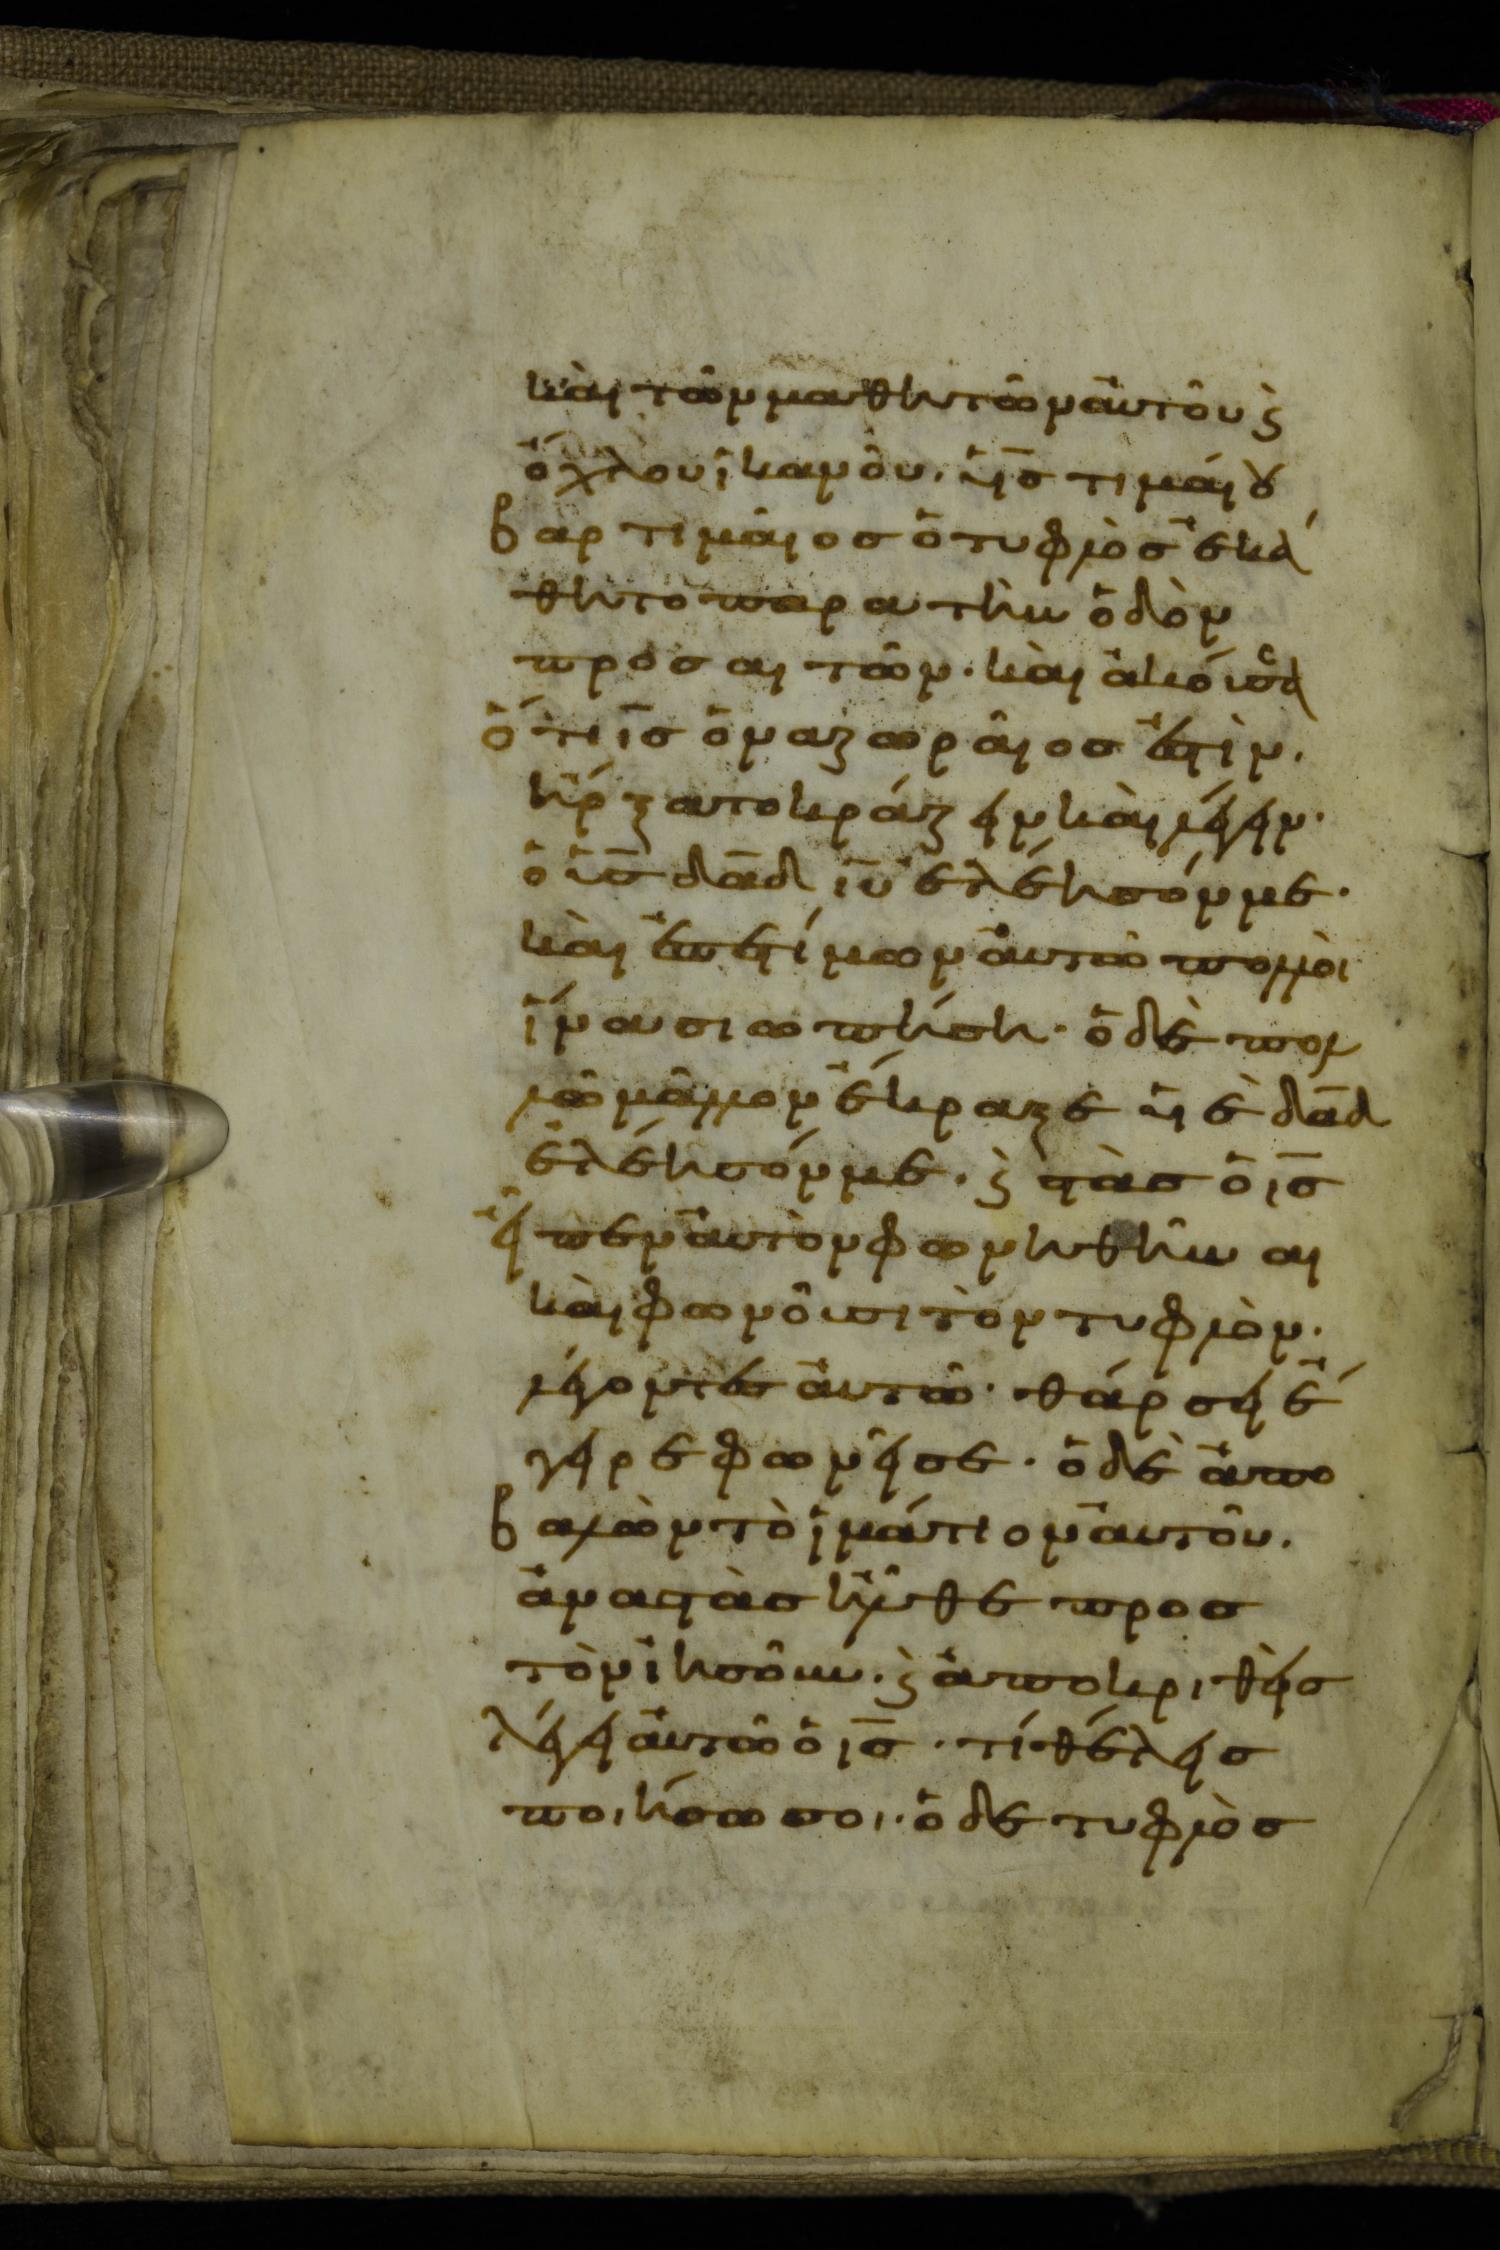 καὶ τῶν μαθητῶν αὐτοῦ ϗ
ὄχλου ἱκανοῦ. ὑ̅ς̅ τιμαίου
βαρτιμαῖος ὁ τυφλὸς ἐκά
θητο παρα τὴν ὁδὸν
προσαιτῶν. καὶ ἀκούσας
ὅτι ι̅ς̅ ὁ ναζωραῖος ἐστὶν.
ἤρξατο κράζειν καὶ λέγειν.
ὁ υ̅ς̅ δα̅δ ι̅υ̅ ἐλέησόν με.
καὶ ἐπετίμων αὐτῶ πολλοὶ
ἵνα σιωπήση. ὁ δὲ πολ
λῶ μᾶλλον ἔκραζε υἱὲ δα̅δ
ἐλέησόν με. ϗ στὰς ὁ ι̅ς̅
εἶπεν αὐτὸν φωνηθῆναι
καὶ φωνοῦσι τὸν τυφλὸν.
λέγοντες αὐτῶ. θάρσει ἔ
γειρε φωνεῖ σε. ὁ δὲ ἀπο
βαλὼν τὸ ἱμάτιον αὐτοῦ.
ἀναστὰς ἦλθε προς
τὸν ἰησοῦν. ϗ ἀποκριθεὶς
λέγει αὐτῶ ὁ ι̅ς̅. τί θέλεις
ποιήσω σοι. ὁ δε τυφλὸς